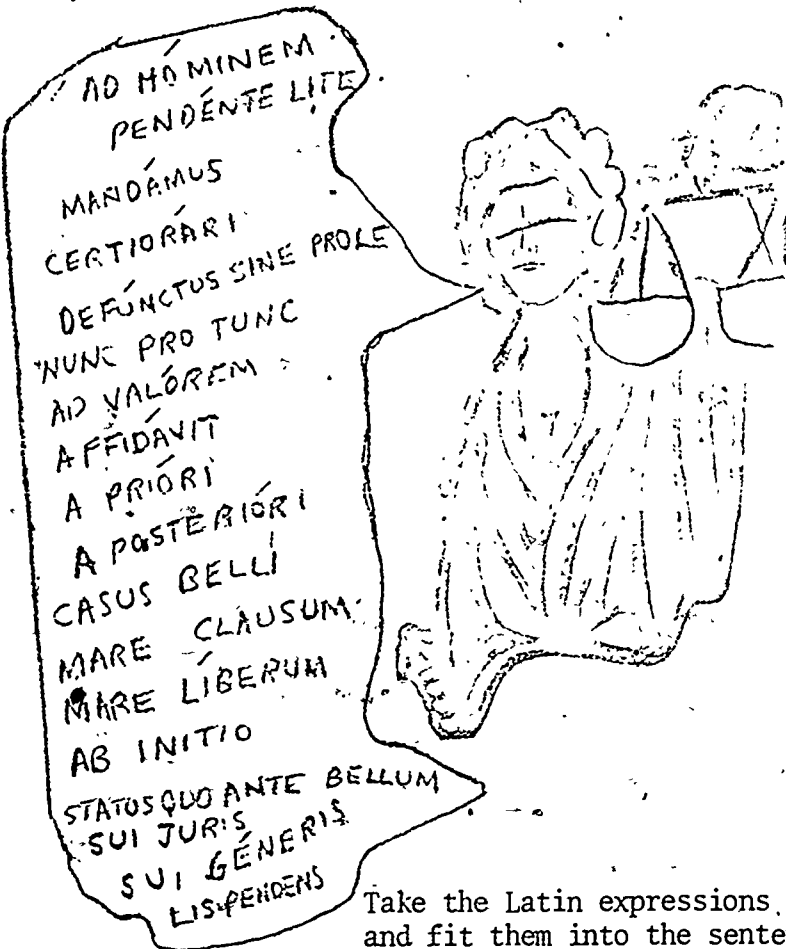 AD HÓMINEM
PENDÉNTE LITE
MANDÁMUS
CERTIORÁRI
DEFÚNCTUS SINE PROLE
NUNC PRO TUNC
AD VALÓREM
AFFIDÁVIT
A PRIÓRI
A POSTERIÓRI
CASUS BELLI
MARE CLAUSUM
MARE LÍBERUM
AB INITIO
STATUS QUO ANTE BELLUM
SUI JURIS
SUI GÉNERIS
LIS PENDENS
Take the Latin expressions
and fit them into the sente